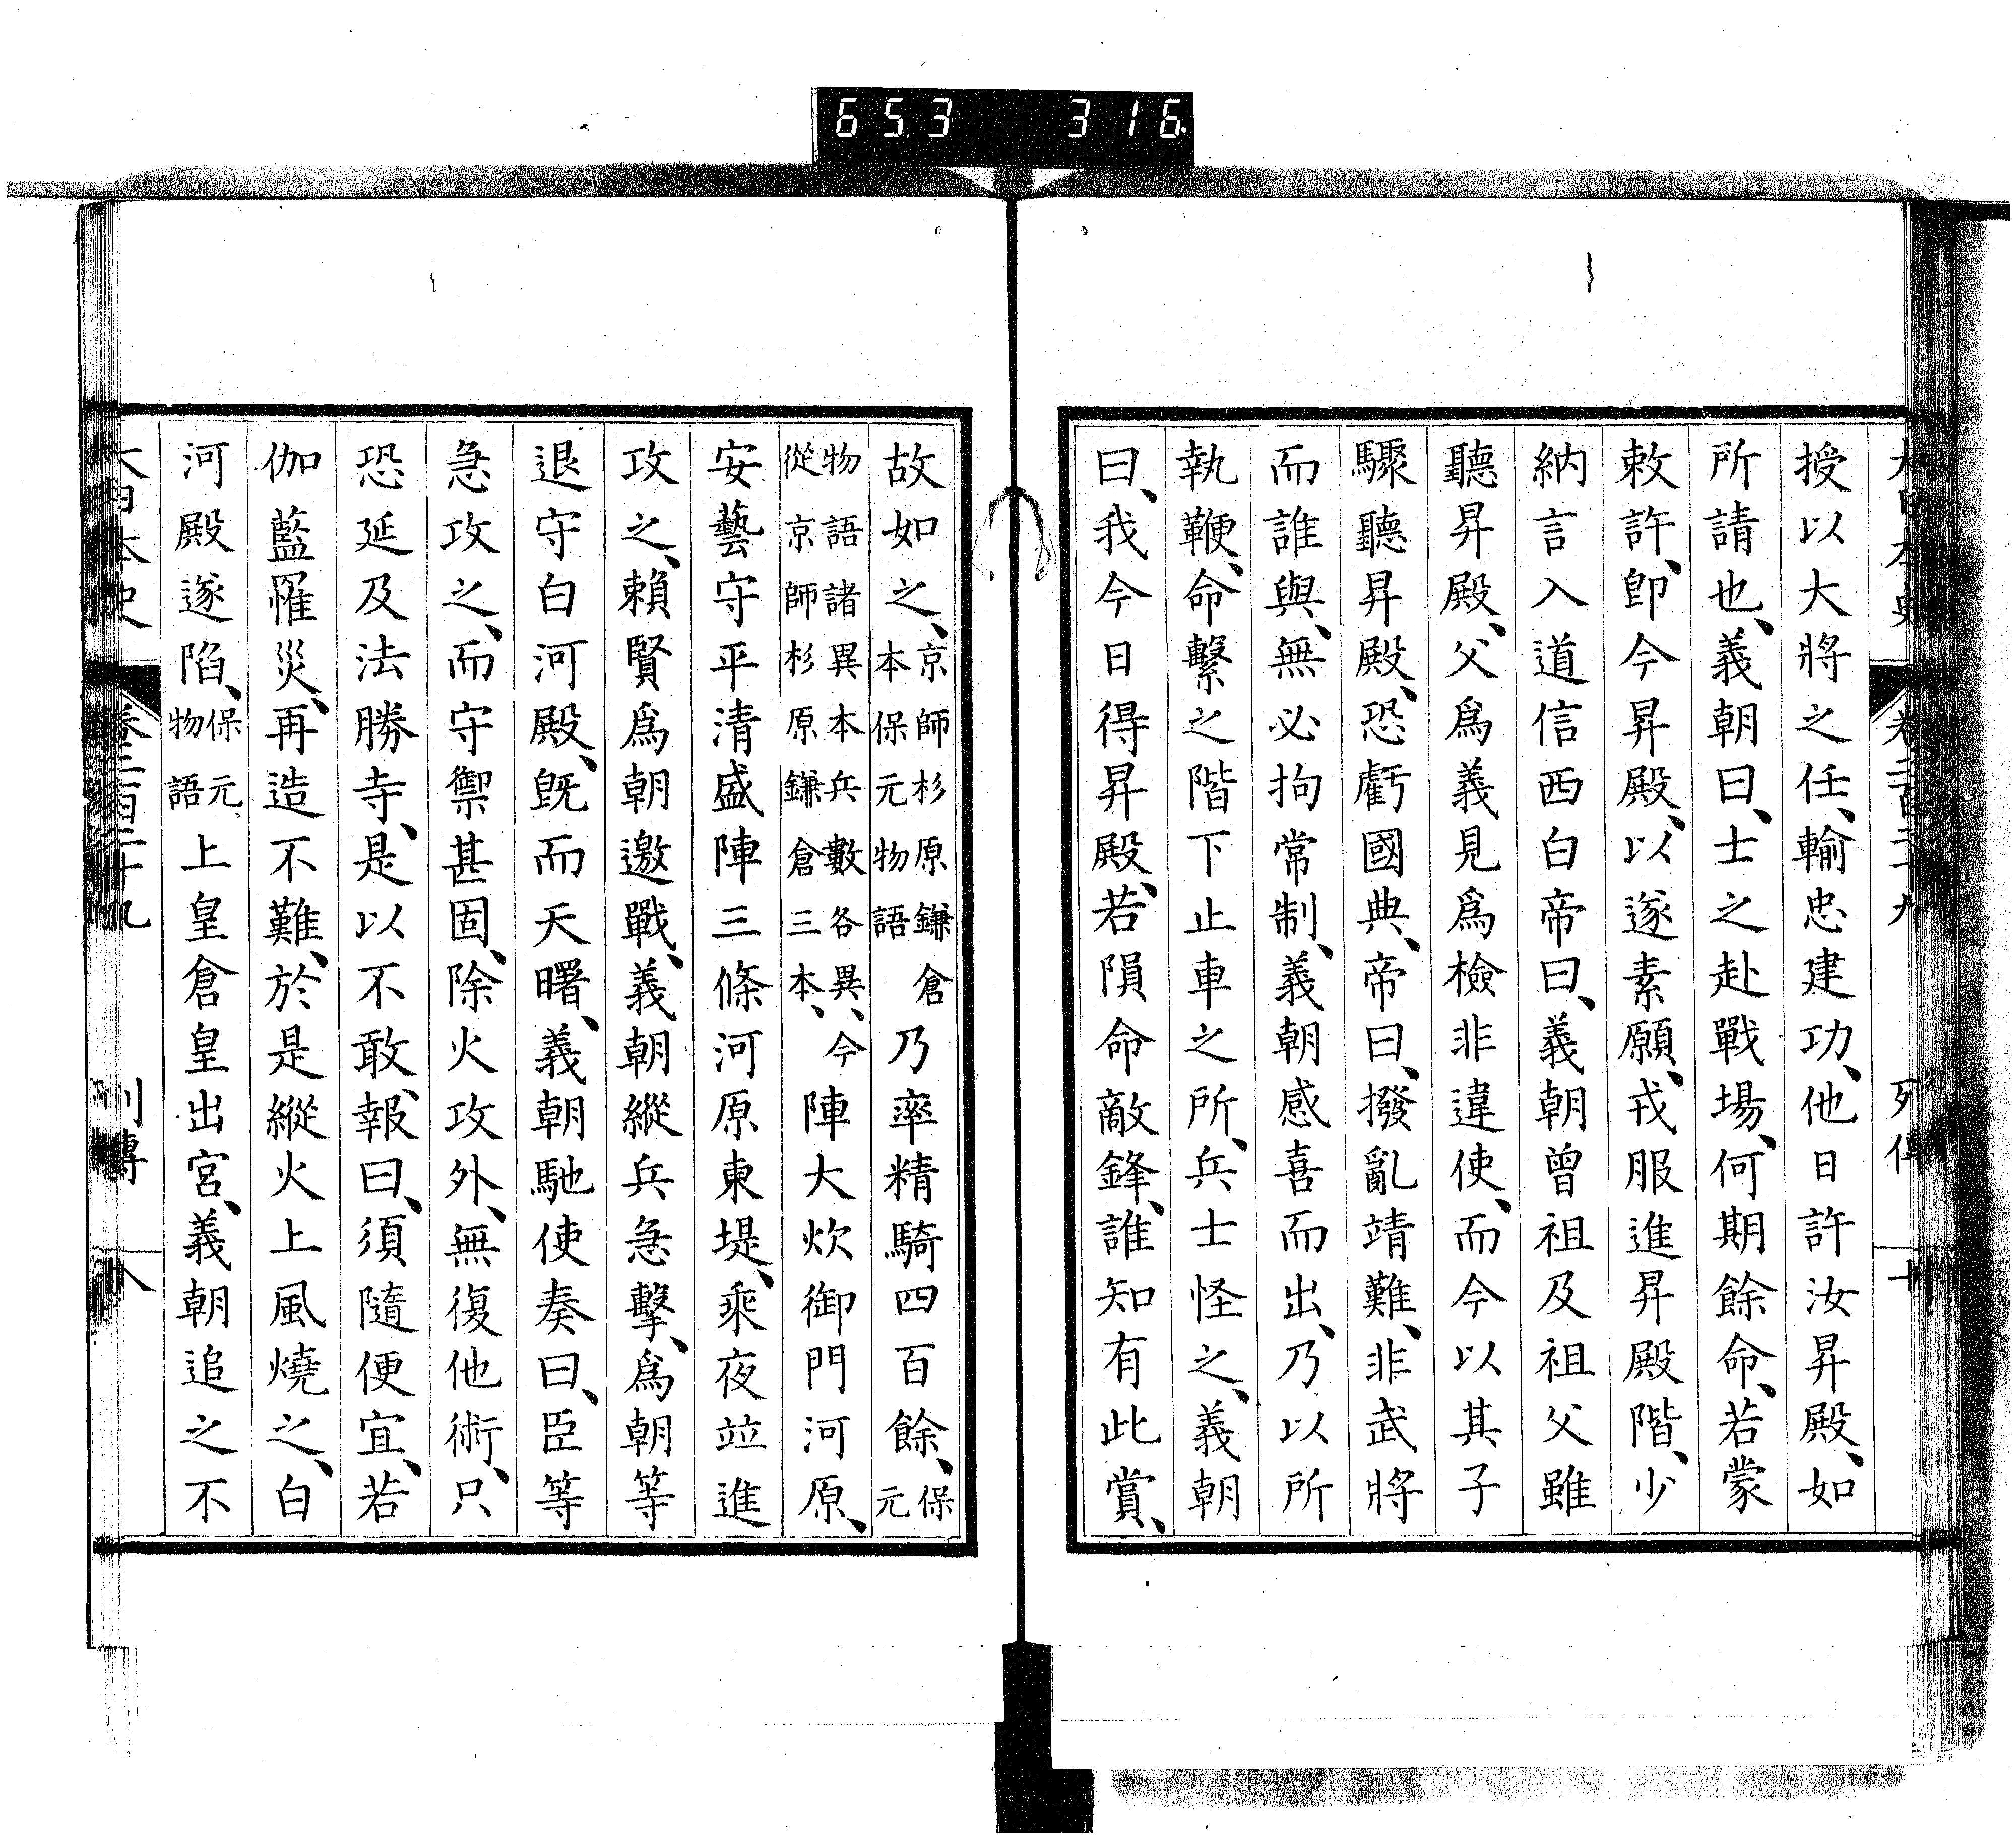 653 316
大日本史 卷二百二十九 列傳
授以大將之任、輸忠建功、他日許汝昇殿、如
所請也、義朝曰、士之赴戰場、何期餘命、若蒙
敕許、卽今昇殿、以遂素願、戎服進昇殿階、少
納言入道信西白帝曰、義朝曾祖及祖父雖
聽昇殿、父爲義見爲檢非違使、而今以其子
驟聽昇殿、恐虧國典、帝曰、撥亂靖難、非武將
而誰與、無必拘常制、義朝感喜而出、乃以所
執鞭、命繫之階下止車之所、兵士怪之、義朝
曰、我今日得昇殿、若隕命敵鋒、誰知有此賞、
故如之、京師杉原鎌倉本保元物語乃率精騎四百餘、保元
物語諸異本兵數各異、今從京師杉原鎌倉三本、陣大炊御門河原、
安藝守平清盛陣三條河原東堤、乘夜竝進
攻之、賴賢爲朝邀戰、義朝縱兵急擊、爲朝等
退守白河殿、旣而天曙、義朝馳使奏曰、臣等
急攻之、而守禦甚固、除火攻外、無復他術、只
恐延及法勝寺、是以不敢、報曰、須隨便宜、若
伽藍罹災、再造不難、於是縱火上風燒之、白
河殿遂陷、保元物語上皇倉皇出宮、義朝追之不
大日本史 卷二百二十九 列傳 八